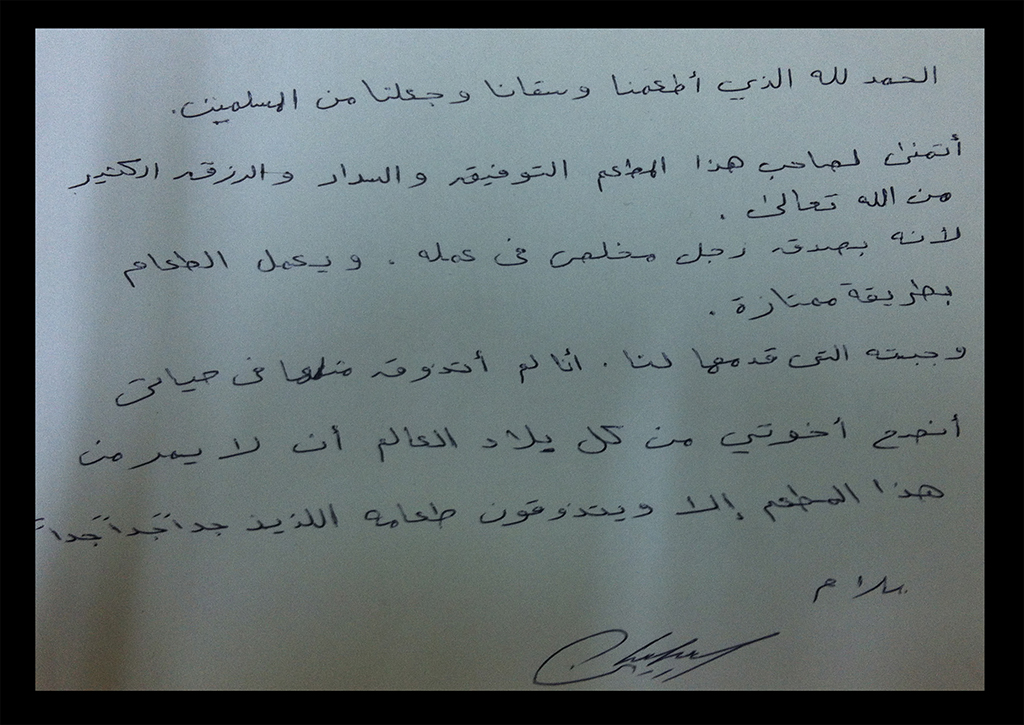 الحمد لله الذي أطعمنا وسقانا وجعلنا من المسلمين.
أتمنى لصاحب هذا المطعم التوفيق والسداد والرزق الكثير
من الله تعالى.
لأنه بصدق رجل مخلص في عمله. ويعمل الطعام
بطريقة ممتازة.
وجبته التي قدمها لنا. أنا لم أتذوق مثلها في حياتي
أنصح أخوتي من كل بلاد العالم أن لا يمر من
هذا المطعم إلا ويتذوقون طعامه اللذيذ جداً جداً جداً
سلام